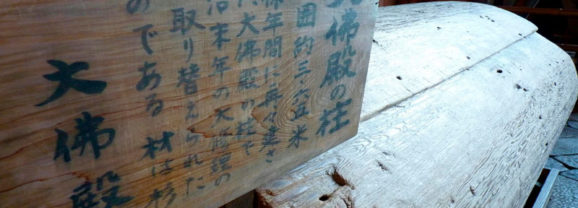 大佛殿の柱
囲約三六〇米
永年間に再々建さ
大佛殿の柱で
治末年の大修理の
取り替えられた
のである 材は杉
大佛殿